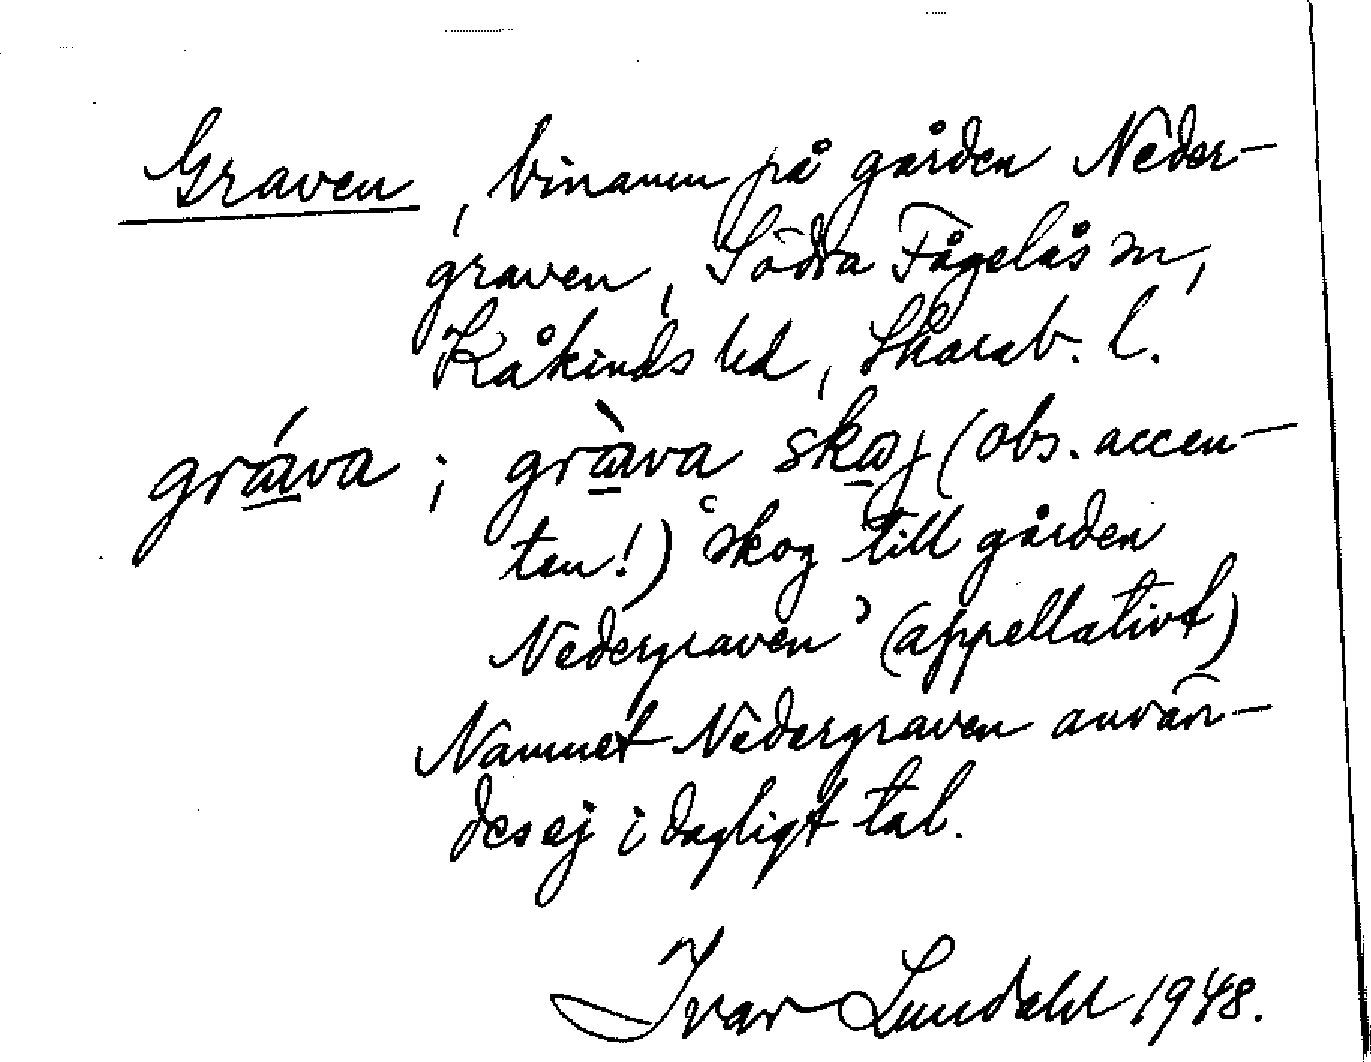 Graven, binamn på gården Neder-
graven, Södra Fågelås sn,
Kåkinds hd, Skarab. l.
gráva; gràva skoɡ (obs. accen-
ten!) 'skog till gården
Nedergraven' (appellativt)
Namnet Nedergraven använ-
des ej i dagligt tal.
Ivar Lundahl 1948.